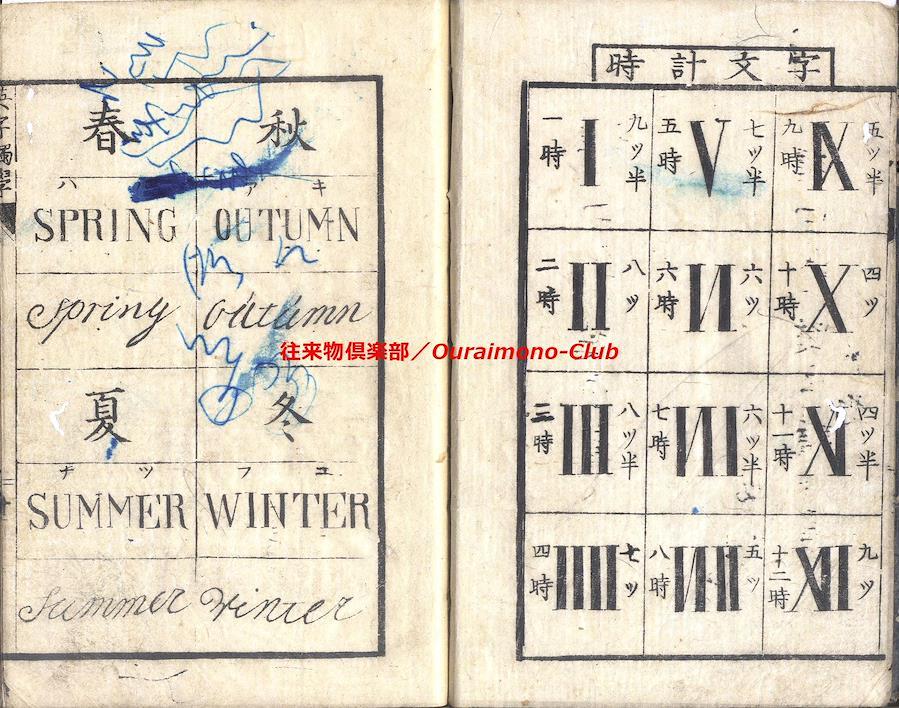 英字獨學
春 秋
ハ ア キ
SPRING AUTUMN
spring autumn
夏 冬
ナ ツ フ ユ
SUMMER WINTER
summer winter
時計文字
一時 I 九ッ半
二時 II 八ッ
三時 III 八ッ半
四時 IIII 七ッ
五時 V 七ッ半
六時 VI 六ッ
七時 VII 六ッ半
八時 VIII 五ッ
九時 IX 五ッ半
十時 X 四ッ
十一時 XI 四ッ半
十二時 XII 九ッ
往来物倶楽部／Ouraimono-Club